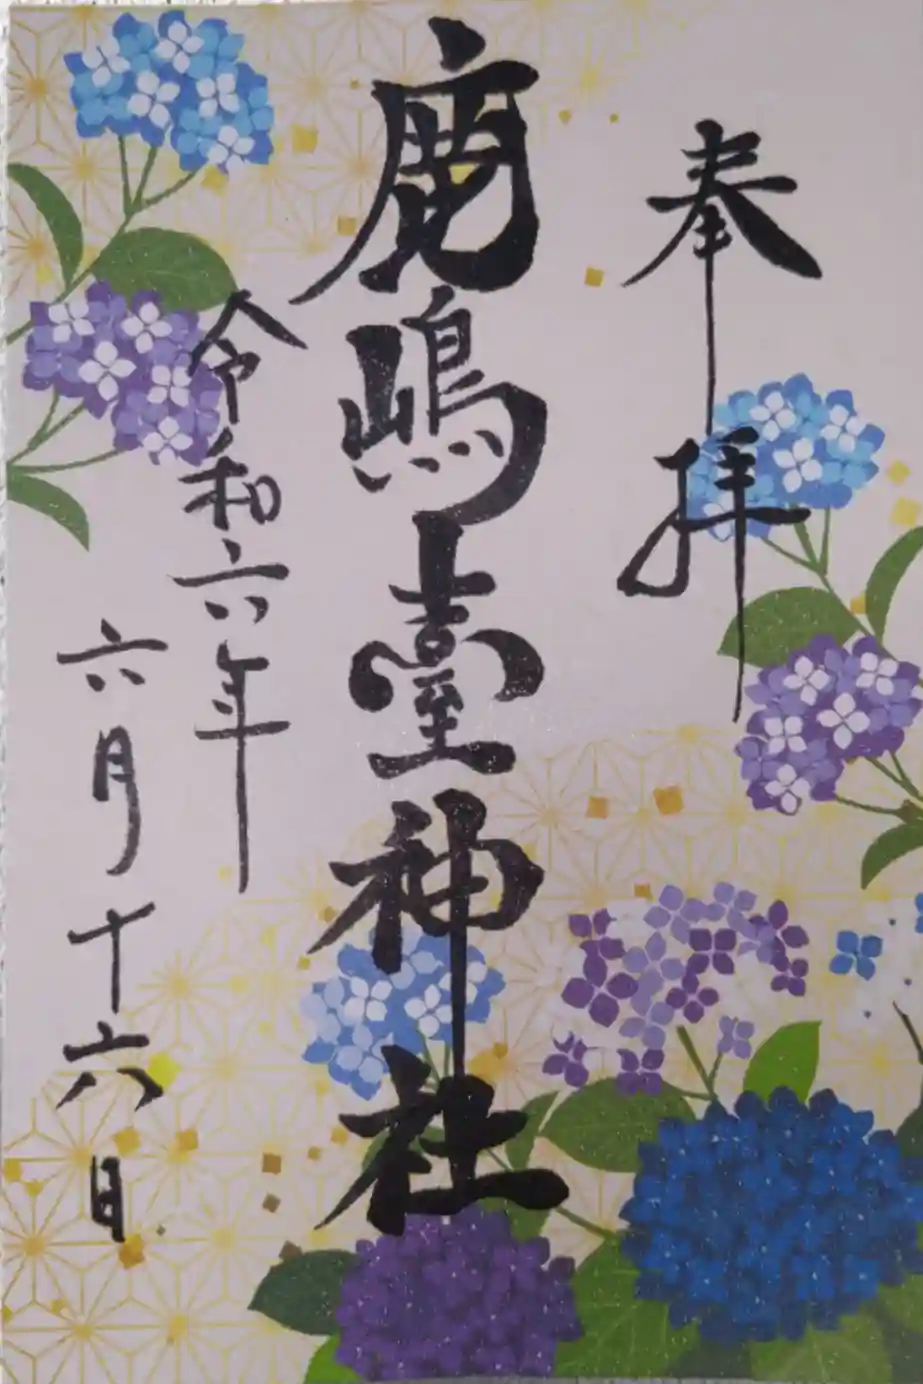 奉拝
鹿嶋臺神社
令和六年
六月十六日